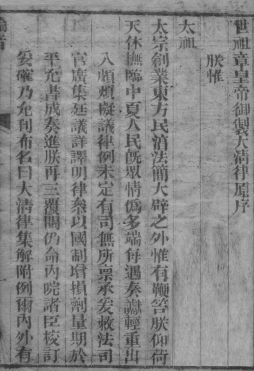 世祖章皇帝御製大清律原序
朕惟
太祖
太宗創業東方民淳法簡大辟之外惟有鞭笞朕仰荷
天休撫臨中夏人民旣眾情僞多端每遇奏讞輕重出
入頗煩擬議律例未定有司無所稟承爰敕法司
官廣集廷議詳譯明律參以國制增損劑量期於
平允書成奏進朕再三覆閱仍命內院諸臣校訂
妥確乃允刊布名曰大清律集解附例爾內外有